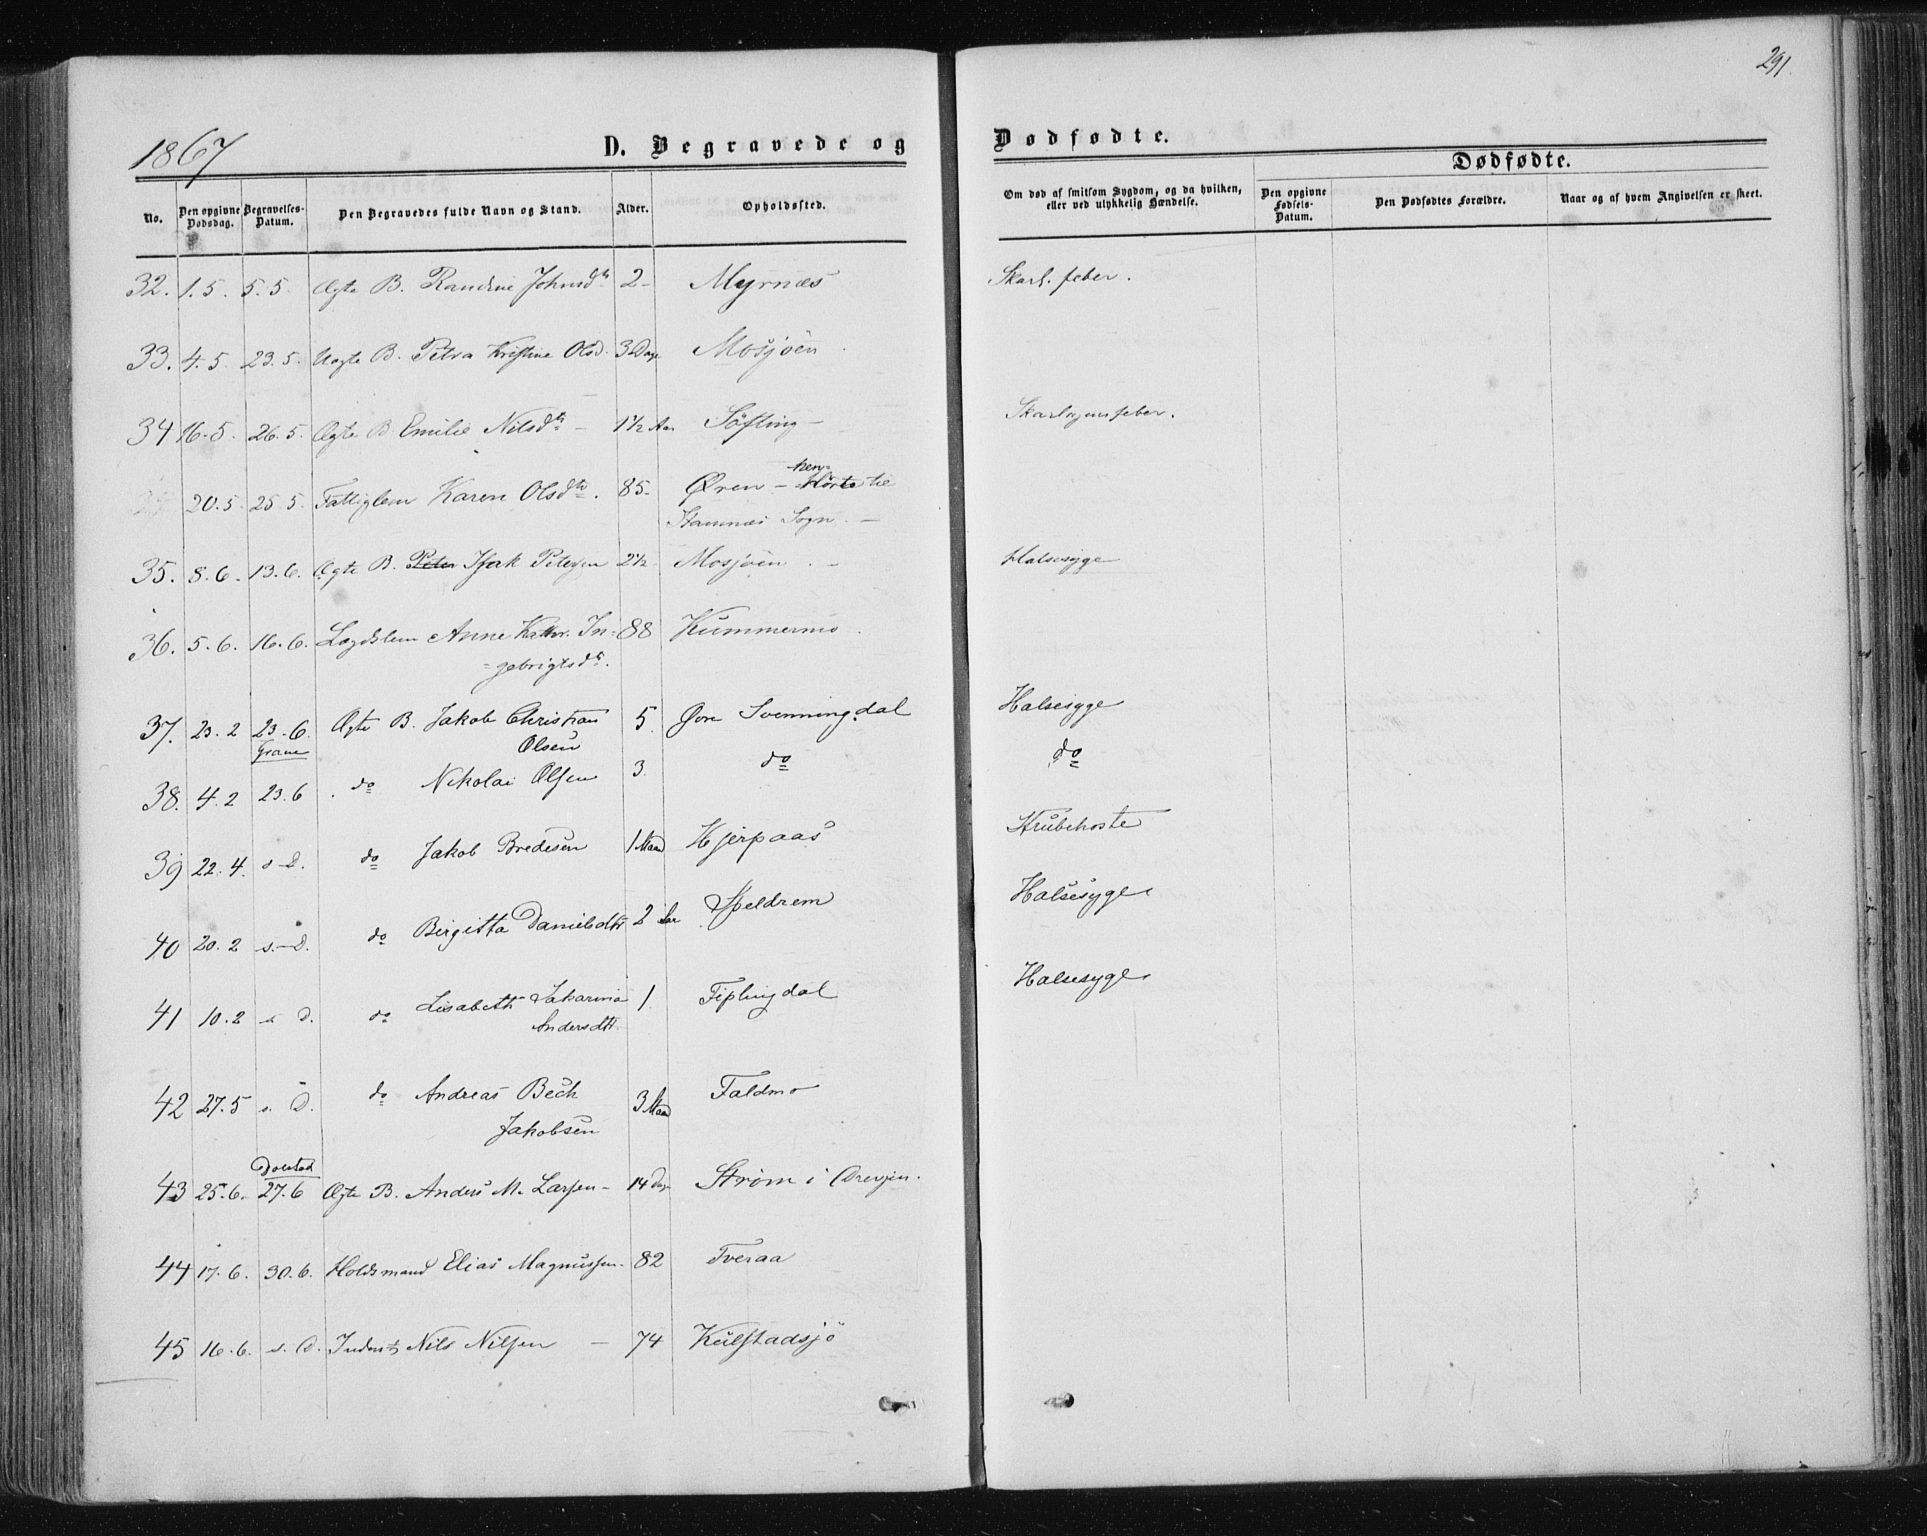 291.
1867
D. Begravede og
Dødfødte.
Dødfødte.
No.
Den opgivne Dødsdag.
Begravelses-Datum.
Den Begravedes fulde Navn og Stand.
Alder.
Opholdssted.
Om død af smitsom Sygdom, og da hvilken, eller ved ulykkelig Hændelse.
Den opgivne Fødsels-Datum.
Den Dødfødtes Forældre.
Naar og af hvem Angivelsen er skeet.
32. 1.5. 5.5. Ægte B. Randine Johnsdtr 2 - Myrnæs Skarl. feber.
33. 4.5. 23.5. Uægte B. Petra Kristine Olsd. 3 Dage Mosjøen
34 16.5. 26.5. Ægte B Emilie Nilsdtr - 1½ Aar Søfting - Skarlagensfeber.
20.5 25.5. Fattiglem Karen Olsdtr. 85. Øren - hen-
hørte til
Stamnæs Sogn. -
35. 8.6. 13.6. Ægte B. Peter Isak Petersen 2½ Mosjøen. - Halsesyge
36. 5.6. 16.6. Lægdslem Anne Kathr. In- 88 Kummermo.
=gebrigtsdtr.
37. 23.2 23.6. Ægte B. Jakob Christian 5 Øvre Svenningdal Halsesyge
Grane
Olsen
38. 4.2 23.6 . do Nikolai Olsen 3. do do
39 22.4. s.D. do Jakob Bredesen 1 Maan Hjerpaas Strubehoste
40 20.2 s.D. do Birgitta Danielsdtr 2 Aar Speldrem Halsesyge
41 10.2 s. D. do Lisabeth Sakarina 1. Fiplingdal Halsesyge
Andersdtr.
42 27.5 s. D. do Andreas Bech 3 Maan Faldmo
Jakobsen
Dolstad
43 25.6. 27.6 Ægte B. Anders M. Larsen - 14 Dage Strøm i Drevjen.
44 17.6. 30.6. Holdsmand Elias Magnussen. 82 Tveraa
45 16.6. s. D. Inderst Nils Nilsen - 74 Kulstadsjø